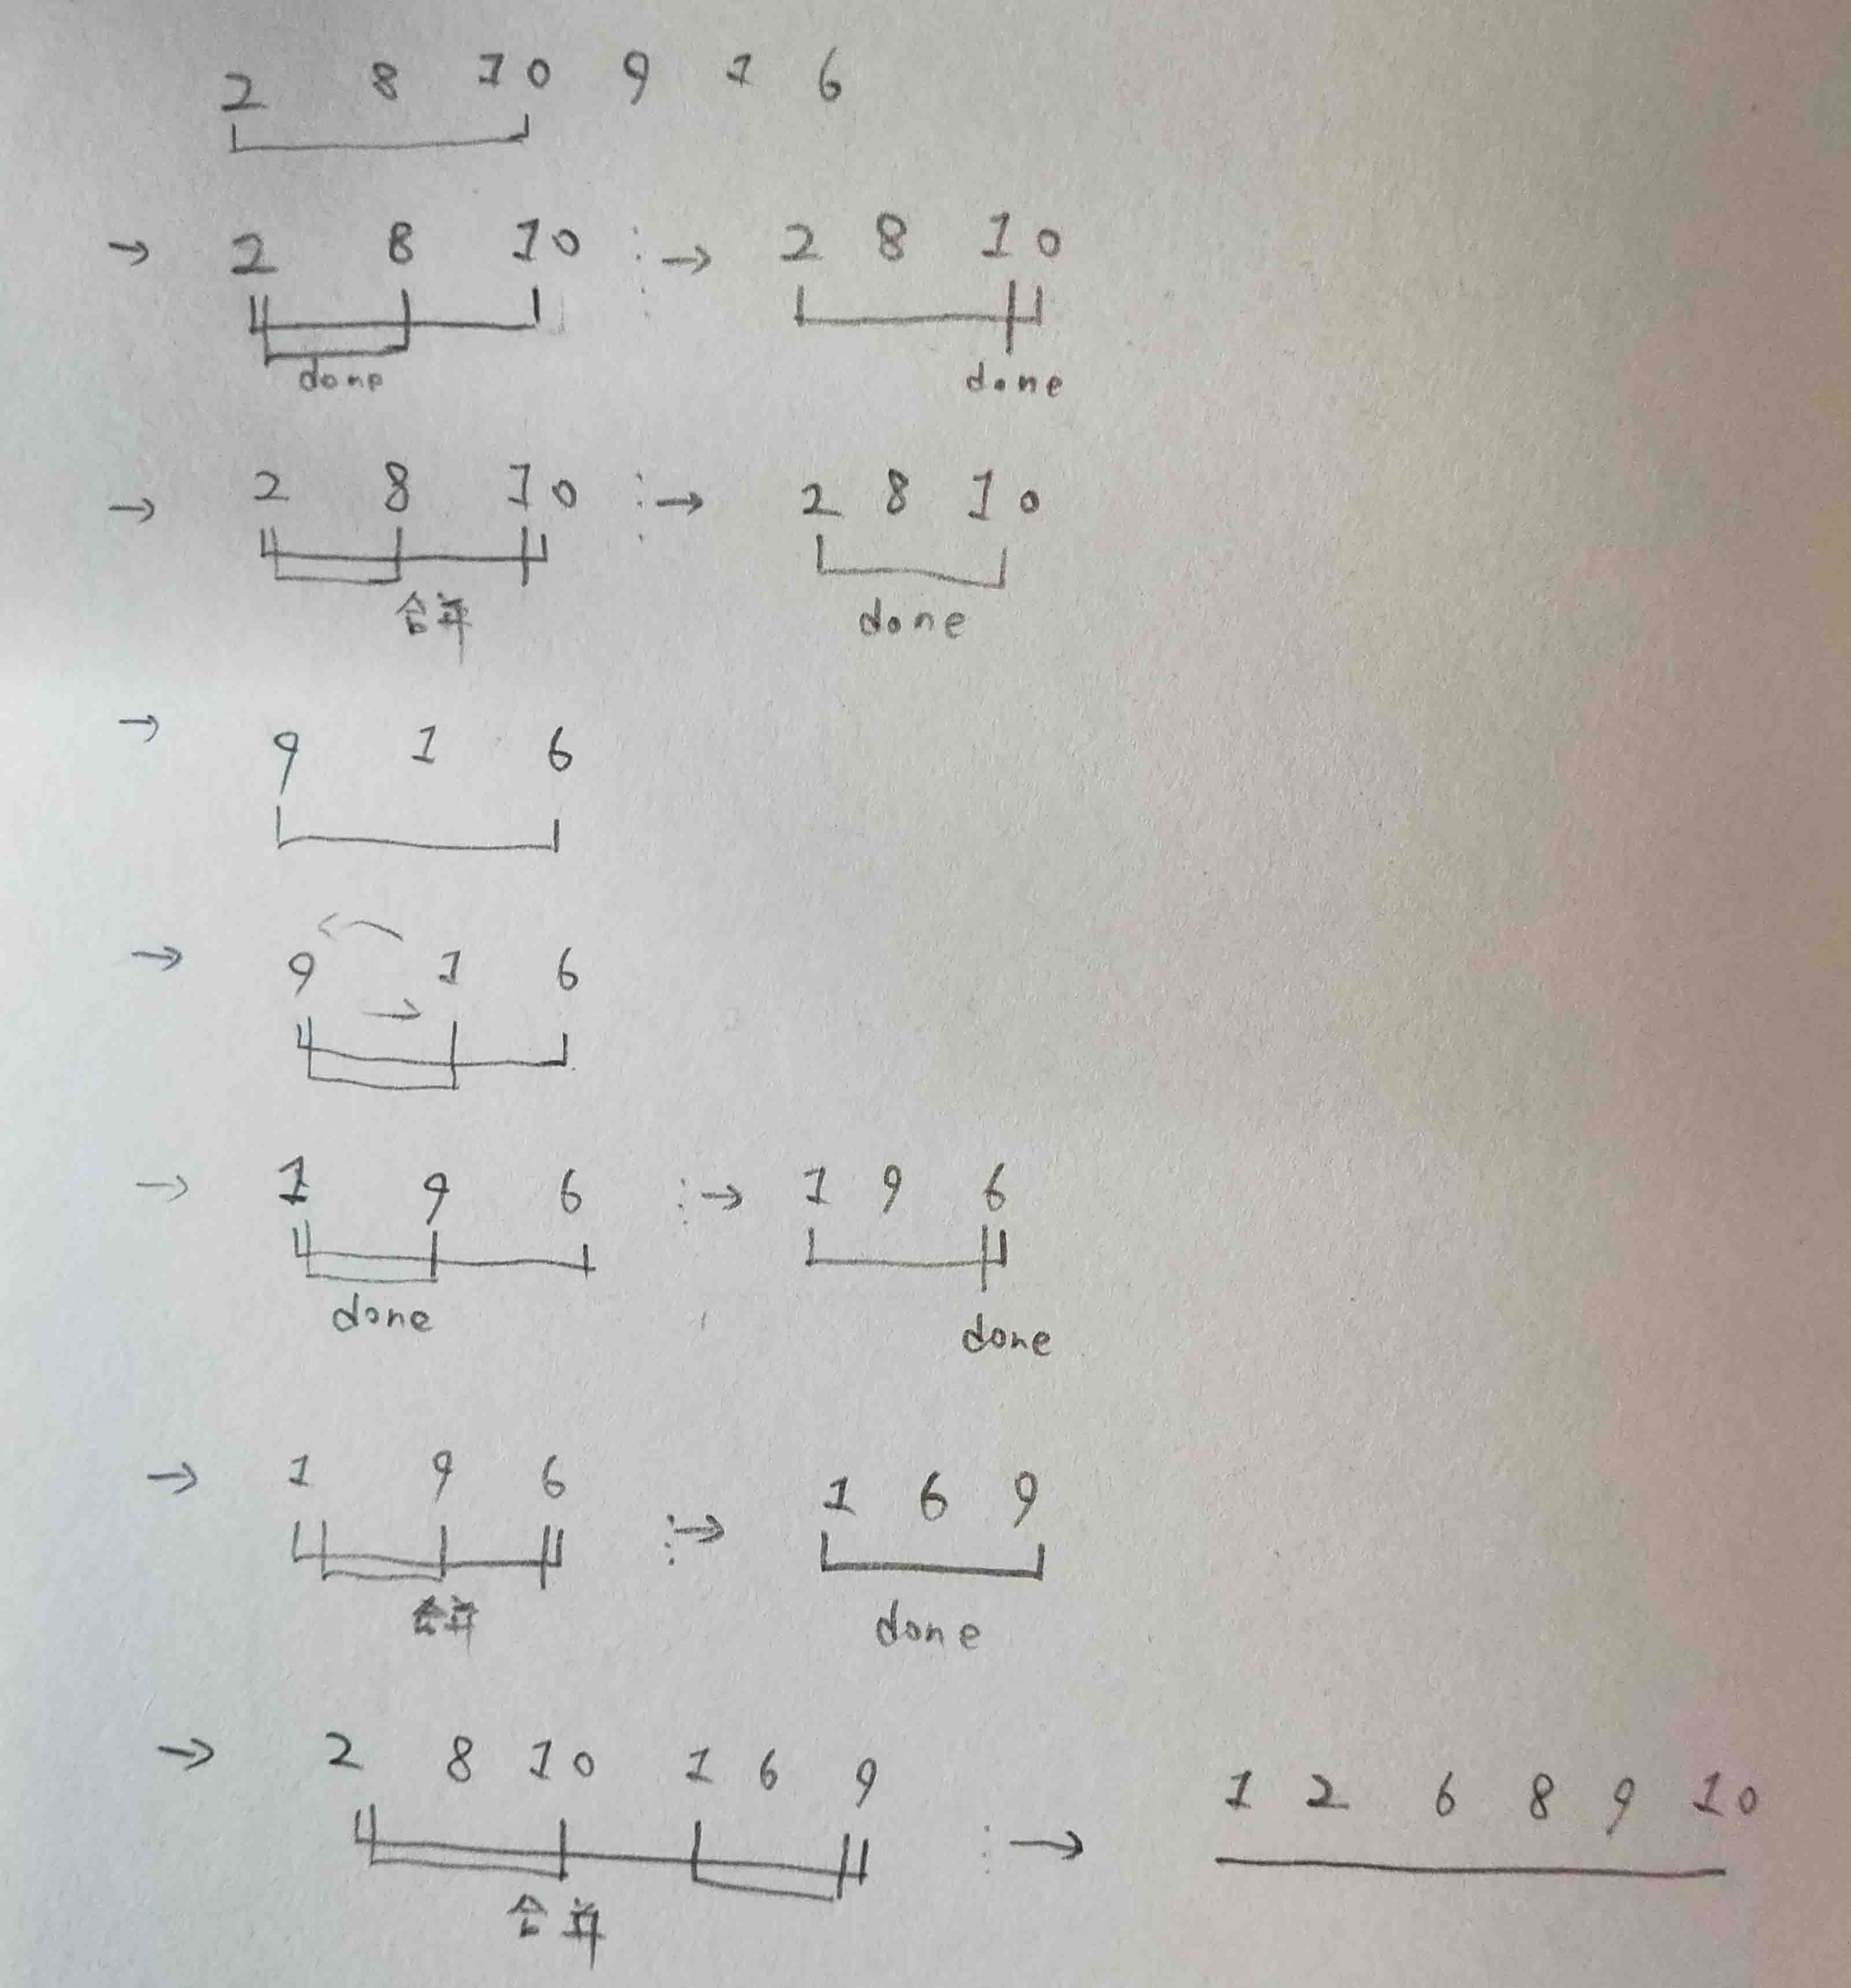 2 8 10 9 1 6
→ 2 8 10 :→ 2 8 10
done done
→ 2 8 10 :→ 2 8 10
合并 done
→ 9 1 6
→ 9 1 6
→ 1 9 6 :→ 1 9 6
done done
→ 1 9 6 :→ 1 6 9
合并 done
→ 2 8 10 1 6 9 :→ 1 2 6 8 9 10
合并